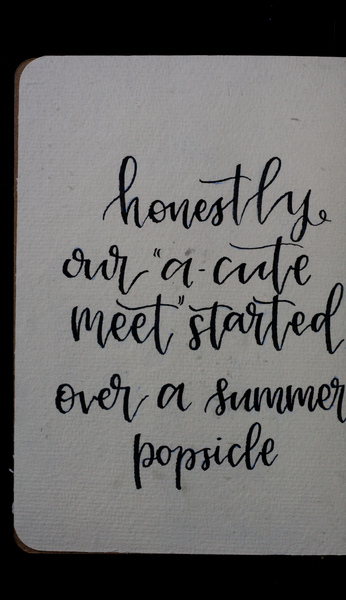 honestly,
our "a-cute
meet" started
over a summer
popsicle